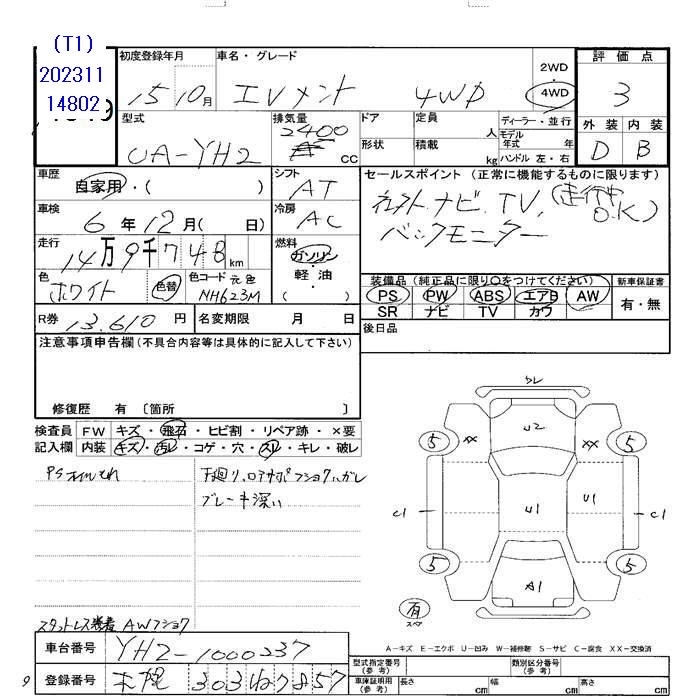 (T1)
202311
14802
初度登録年月
15 10月
車名・グレード
エレメント 4WD
2WD
・
4WD
評価点
3
外装 内装
D B
型式
UA-YH2
排気量
2400
CC
ドア
形状
定員
人
積載
kg
ディーラー・並行
モデル
年式 年
ハンドル 左・右
車歴
自家用・( )
シフト
AT
車検
6年12月( 日)
冷房
AC
走行
14万9千748km
燃料
ガソリン
・
軽油
・
( )
色
ホワイト
色替
色コード 元色
NH623M
セールスポイント (正常に機能するものに限ります)
ナビ.TV.(走行中
O.K)
バックモニター
装備品(純正品に限り○をつけてください)
PS PW ABS エアB AW
SR ナビ TV カワ
新車保証書
有・無
R券 13,610円
名変期限 月 日
後日品
注意事項申告欄(不具合内容等は具体的に記入して下さい)
修復歴 有 〔箇所 〕
検査員
記入欄
FW キズ・飛石・ヒビ割・リペア跡・×要
内装 キズ・汚レ・コゲ・穴・スレ・キレ・破レ
PSオイルもれ
下廻り、ロアサポ
ブレーキ深い
スタットレス装着 AWフショク
車台番号 YH2-1000237
登録番号 札幌 303
9
U2
XX XX
5 5
C1 U1 U1 C1
5 5
A1
有
スペア
A-キズ E-エクボ U-凹み W-補修跡 S-サビ C-腐食 XX-交換済
型式指定番号
(参考)
類別区分番号
(参考)
車庫証明用
(参考)
長さ cm
幅 cm
高さ cm